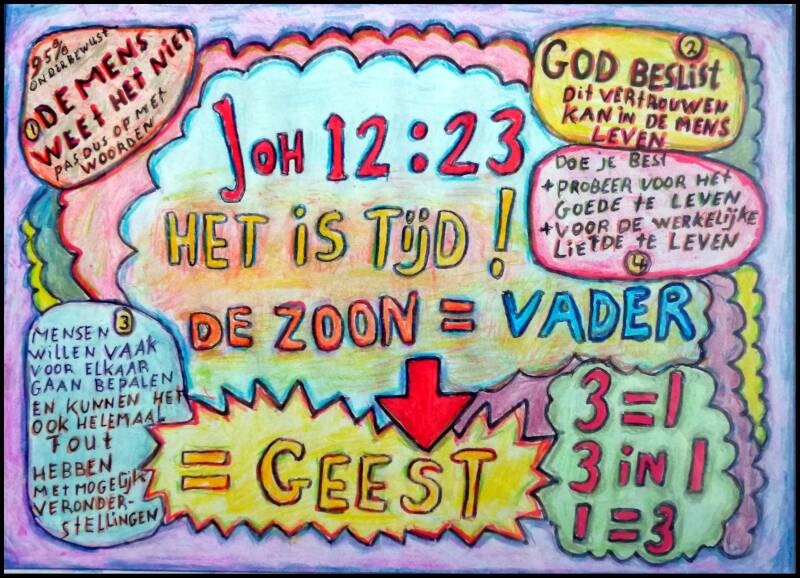 95%
ONDERBEWUST
① DE MENS
WEET HET NIET
PAS DUS OP MET
WOORDEN
②
GOD BESLIST
DIT VERTROUWEN
KAN IN DE MENS
LEVEN
DOE JE BEST
+ PROBEER VOOR HET
GOEDE TE LEVEN
+ VOOR DE WERKELIJKE
LIEFDE TE LEVEN
④
JOH 12:23
HET iS TijD !
DE ZOON = VADER
= GEEST
③
MENSEN
WILLEN VAAK
VOOR ELKAAR
GAAN BEPALEN
EN KUNNEN HET
OOK HELEMAAL
FOUT
HEBBEN
MET MOGELIJK
VERONDER-
STELLINGEN
3=1
3 iN 1
1=3